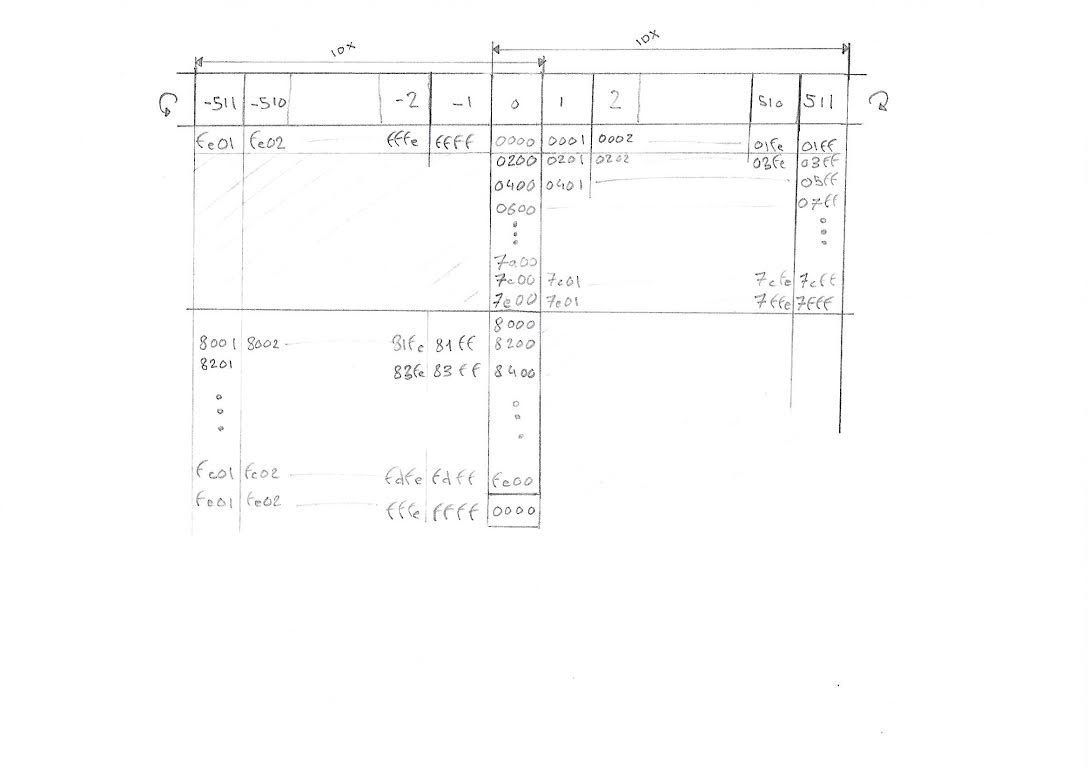 10x 10x
-511 -510 -2 -1 0 1 2 510 511
fe01 fe02 fffe ffff 0000 0001 0002 01fe 01ff
0200 0201 0202 03fe 03ff
0400 0401 05ff
0600 07ff
7a00
7c00 7c01 7cfe 7cff
7e00 7e01 7ffe 7fff
8000
8001 8002 81fe 81ff 8200
8201 83fe 83ff 8400
fc01 fc02 fdfe fdff fe00
fe01 fe02 fffe ffff 0000